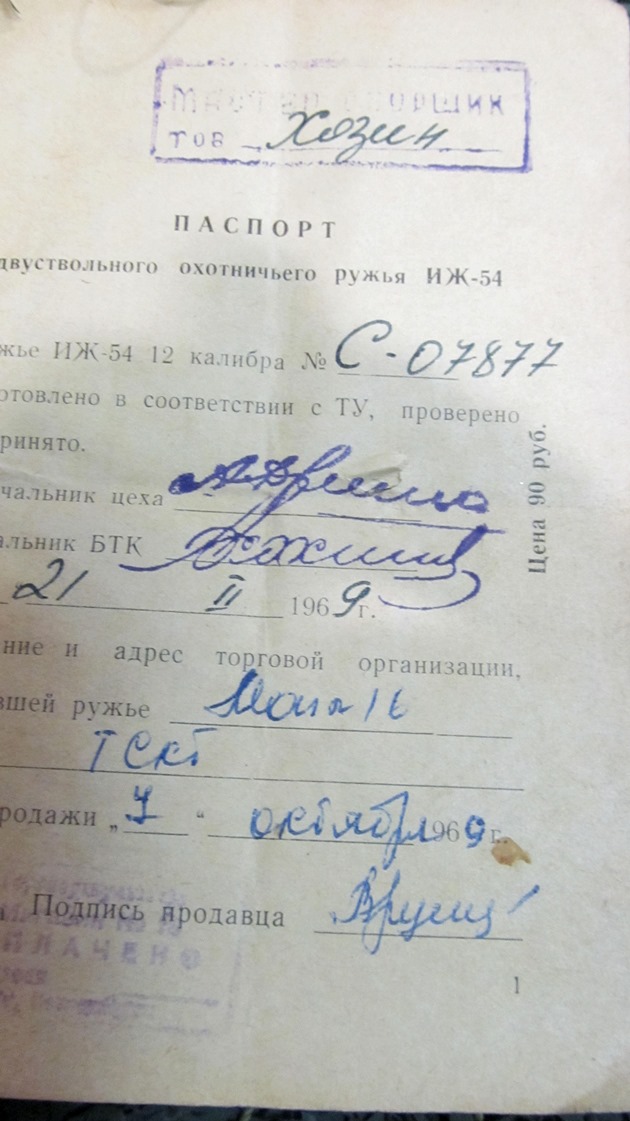 тов Хозин
ПАСПОРТ
двуствольного охотничьего ружья ИЖ-54
жье ИЖ-54 12 калибра № С-07877
отовлено в соответствии с ТУ, проверено
ринято.
чальник цеха
альник БТК
21 II 1969 г.
ние и адрес торговой организации,
вшей ружье Маг 16
родажи „7“ октября 1969 г.
Подпись продавца
ПЛАЧЕНО
1
Цена 90 руб.